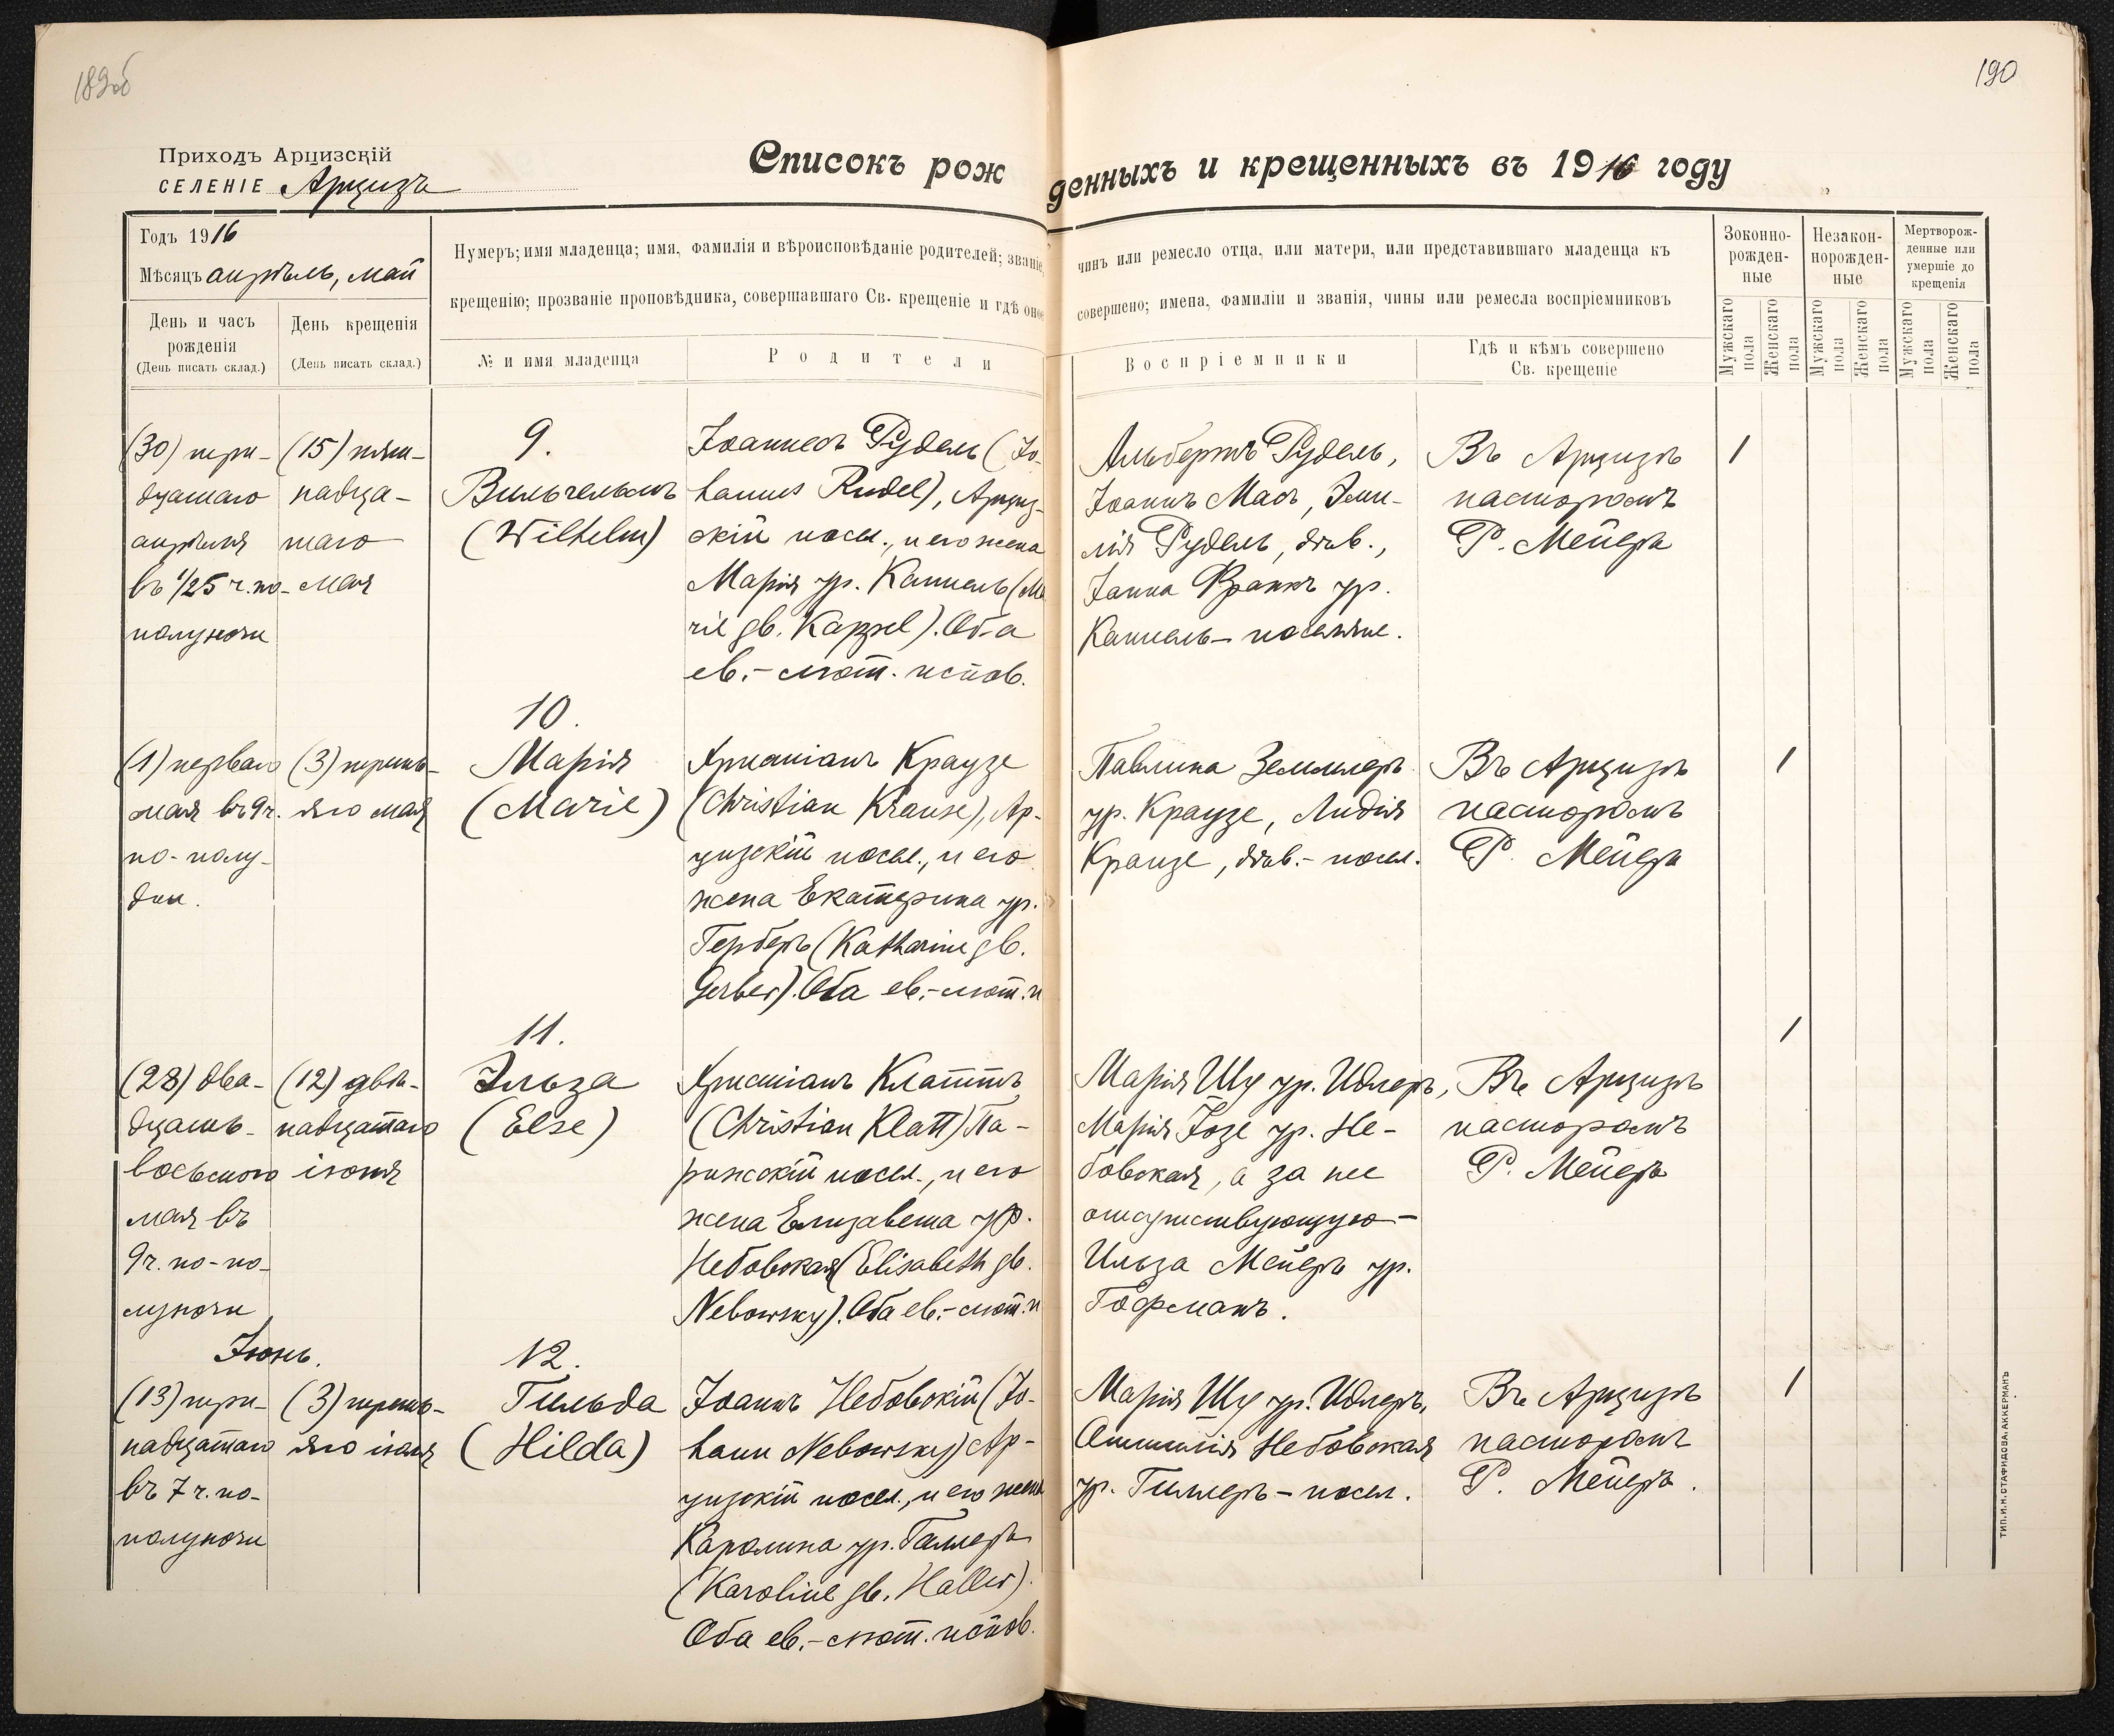 189об
190
Приходъ Арцизскій
СЕЛЕНІЕ Арцизъ
Списокъ рожденныхъ и крещенныхъ въ 1916 году
Годъ 1916
Мѣсяцъ апрѣль, май
День и часъ рожденія
(День писать склад.)
День крещенія
(День писать склад.)
Нумеръ; имя младенца; имя, фамилія и вѣроисповѣданіе родителей; званіе,
чинъ или ремесло отца, или матери, или представившаго младенца къ
крещенію; прозваніе проповѣдника, совершавшаго Св. крещеніе и гдѣ оное
совершено; имена, фамиліи и званія, чины или ремесла воспріемниковъ
№ и имя младенца
Родители
Воспріемники
Гдѣ и кѣмъ совершено
Св. крещеніе
Зоконно-
рожден-
ные
Незакон-
норожден-
ные
Мертворож-
денные или
умершіе до
крещенія
Мужскаго пола
Женскаго пола
Мужскаго пола
Женскаго пола
Мужскаго пола
Женскаго пола
(30) три-
дцатаго
апрѣля
въ 1/25 ч. по-
полуночи
(15) пят-
надца-
таго
мая
9.
Вильгельмъ
(Wilhelm)
Іоаннесъ Рудель (Jo-
hannes Rudel), Арциз-
скій посел., и его жена
Марія ур. Каппель (Ma
rie gb. Kappel). Оба
ев.-лют. испов.
Альбертъ Рудель,
Іоаннъ Масъ, Эми-
лія Рудель, дѣв.,
Іанна Франкъ ур.
Каппель - поселяне.
Въ Арцизѣ
пасторомъ
Р. Мейеръ
1
(1) перваго
мая въ 9 ч.
по-полу-
дни.
(3) треть-
яго мая
10.
Марія
(Marie)
Христіанъ Краузе
(Christian Krause), Ар-
цизскій посел., и его
жена Екатерина ур.
Герберъ (Katharine gb.
Gerber). Оба ев.-лют. и
Павлина Земмлеръ
ур. Краузе, Лидія
Краузе, дѣв. - посел.
Въ Арцизѣ
пасторомъ
Р. Мейеръ
1
(28) два-
дцать-
восьмого
мая въ
9 ч. по-по-
луночи
(12) двѣ-
надцатаго
іюня
11.
Эльза
(Else)
Христіанъ Клаттъ
(Christian Klatt) Па-
рижскій посел., и его
жена Елизавета ур.
Небовская (Elisabeth gb.
Nebowsky). Оба ев.-лют. и
Марія Шу ур. Идлеръ,
Марія Гозе ур. Не-
бовская, а за нее
отсутствующую -
Ильза Мейеръ ур.
Гофманъ.
Въ Арцизѣ
пасторомъ
Р. Мейеръ
1
Іюнь.
(13) три-
надцатаго
въ 7 ч. по-
полуночи
(3) треть-
яго іюля
12.
Гильда
(Hilda)
Іоаннъ Небовскій (Jo-
hann Nebowsky) Ар-
цизскій посел., и его жена
Каролина ур. Галлеръ
(Karoline gb. Haller).
Оба ев.-лют. испов.
Марія Шу ур. Идлеръ,
Оттилія Небовская
ур. Гиллеръ - посел.
Въ Арцизѣ
пасторомъ
Р. Мейеръ.
1
ТИП. И. Н. СТАФИДОВА, АККЕРМАНЪ